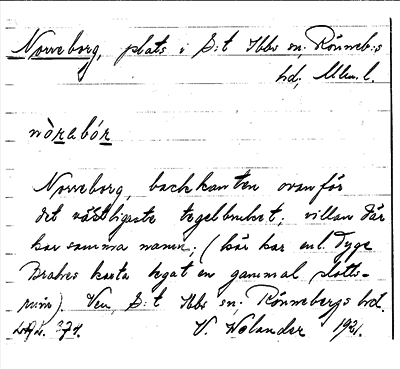 Norreborg, plats i S:t Ibbs sn. Rönneb:s
hd; Mlm. l.
nòrabór
Norreborg, backkanten ovanför
det västligaste tegelbruket; villan där
har samma namn; (här har enl. Tyge
Brahes karta legat en gammal slotts-
ruin). Ven, S:t Ibbs sn; Rönnebergs hd.
374. V. Wolander 1931.